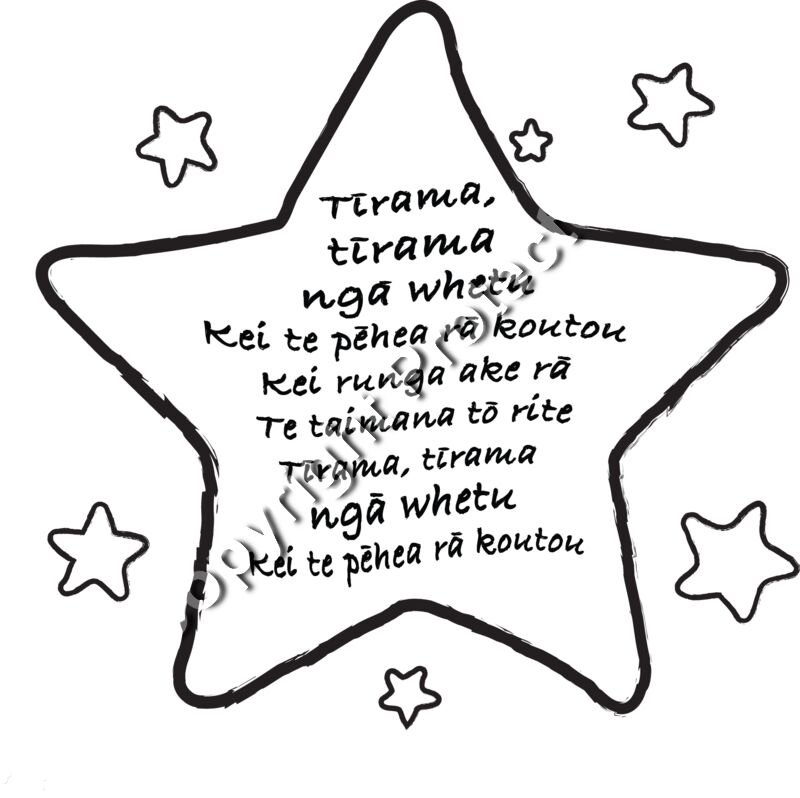 Tīrama,
tīrama
ngā whetu
Kei te pēhea rā koutou
Kei runga ake rā
Te taimana tō rite
Tīrama, tīrama
ngā whetu
Kei te pēhea rā koutou
opyright Protect